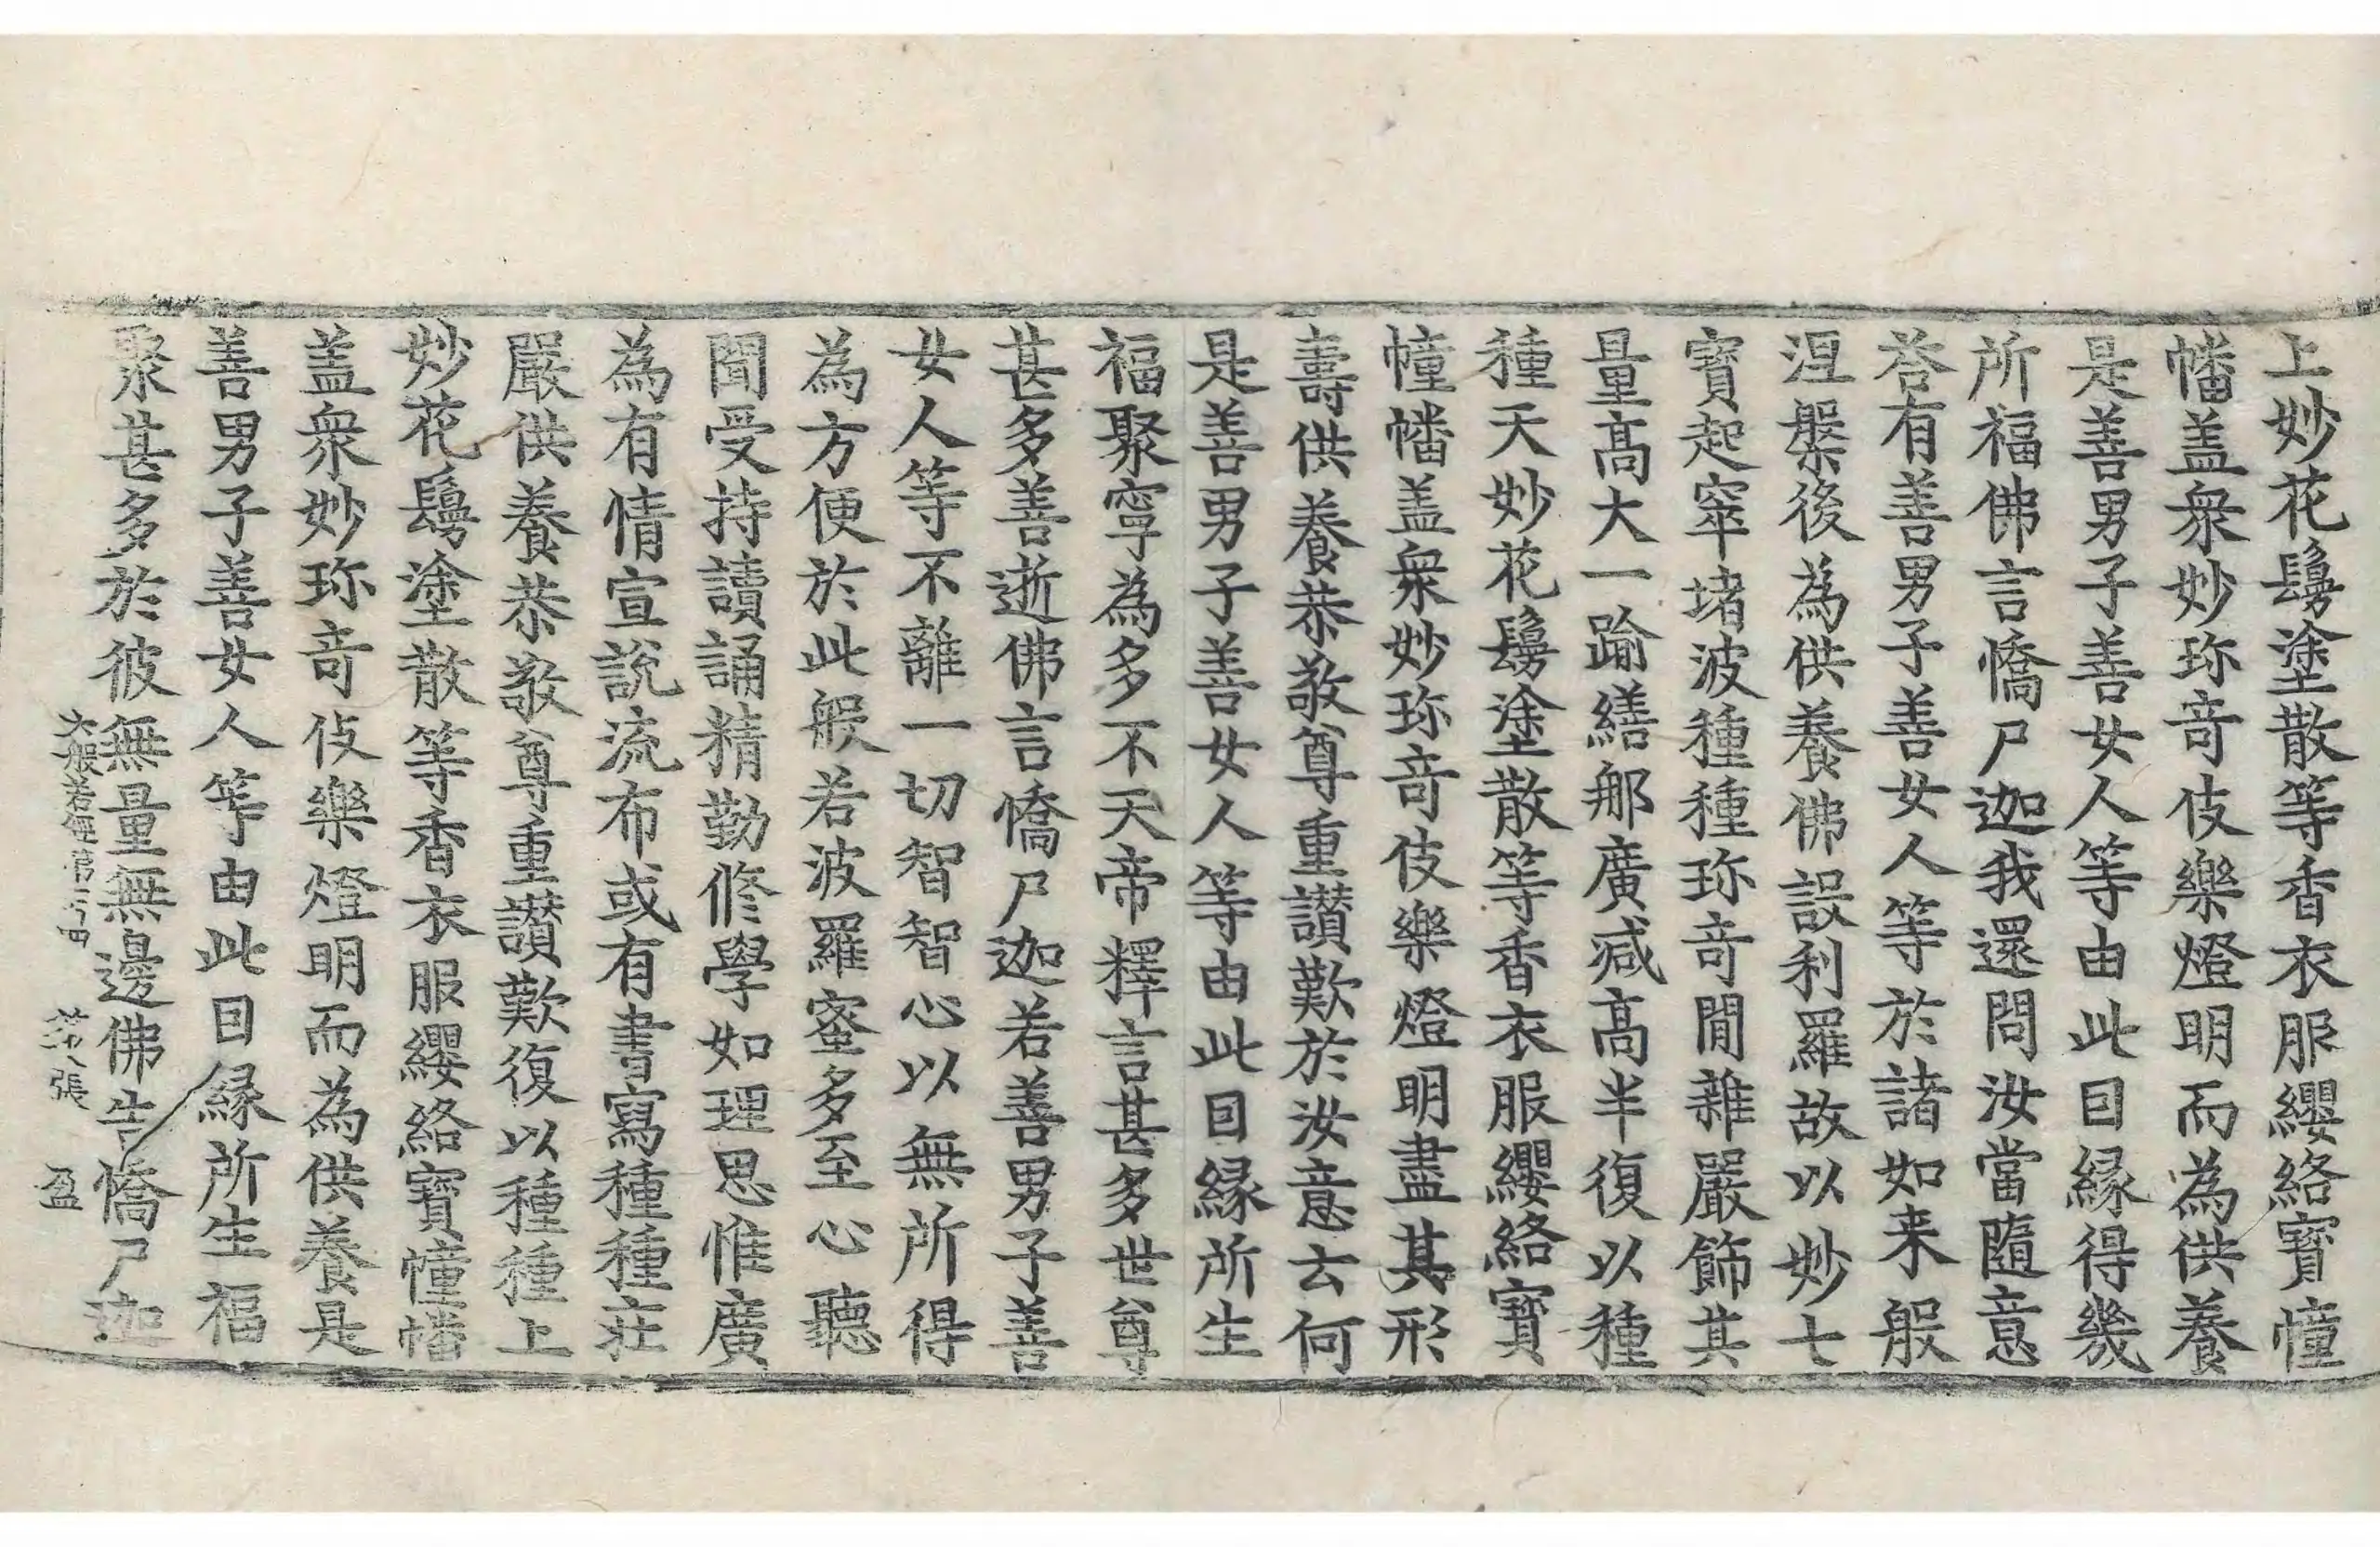 上妙花鬘塗散等香衣服纓絡寶幢
幡盖衆妙珎竒伎樂燈明而為供養
是善男子善女人等由此因緣得幾
所福佛言憍尸迦我還問汝當隨意
荅有善男子善女人等於諸如来般
涅槃後為供養佛設利羅故以妙七
寶起窣堵波種種珎竒間雜嚴飾其
量髙大一踰繕那廣減髙半復以種
種天妙花鬘塗散等香衣服纓絡寶
幢幡盖衆妙珎竒伎樂燈明盡其形
壽供養恭敬尊重讚歎於汝意云何
是善男子善女人等由此因緣所生
福聚寧為多不天帝釋言甚多世尊
甚多善逝佛言憍尸迦若善男子善
女人等不離一切智智心以無所得
為方便於此般若波羅蜜多至心聽
聞受持讀誦精勤修學如理思惟廣
為有情宣說流布或有書寫種種莊
嚴供養恭敬尊重讚歎復以種種上
妙花鬘塗散等香衣服纓絡寶幢幡
盖衆妙珎竒伎樂燈明而為供養是
善男子善女人等由此因緣所生福
聚甚多於彼無量無邊佛告憍尸迦
大般若經第 第八張 盈